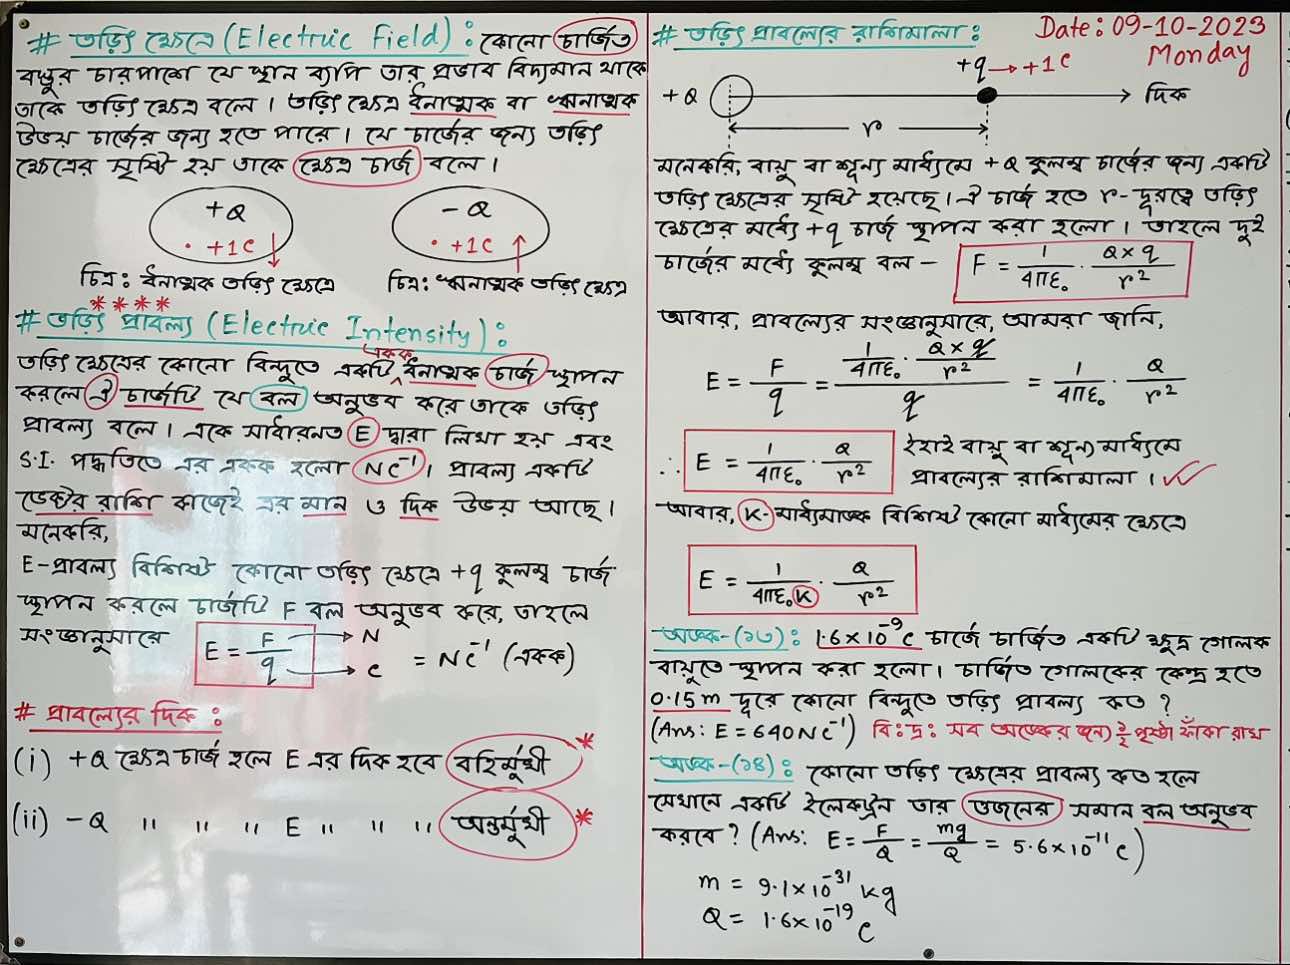 # তড়িৎ ক্ষেত্রে (Electric Field) : কোনো চার্জিত
বস্তুর চারপাশে যে স্থান ব্যাপি তার প্রভাব বিদ্যমান থাকে
তাকে তড়িৎ ক্ষেত্র বলে । তড়িৎ ক্ষেত্র ধনাত্মক বা ঋনাত্মক
উভয় চার্জের জন্য হতে পারে । যে চার্জের জন্য তড়িৎ
ক্ষেত্রের সৃষ্টি হয় তাকে ক্ষেত্র চার্জ বলে ।
+Q
-Q
+1C
+1C
চিত্র : ধনাত্মক তড়িৎ ক্ষেত্রে
চিত্র : ঋনাত্মক তড়িৎ ক্ষেত্র
****
# তড়িৎ প্রাবল্য (Electric Intensity) :
তড়িৎ ক্ষেত্রের কোনো বিন্দুতে একটি একক ধনাত্মক চার্জ স্থাপন
করলে ঐ চার্জটি যে বল অনুভব করে তাকে তড়িৎ
প্রাবল্য বলে । একে সাধারনত E দ্বারা লিখা হয় এবং
S.I. পদ্ধতিতে এর একক হলো NC⁻¹ । প্রাবল্য একটি
ভেক্টর রাশি কাজেই এর মান ও দিক উভয় আছে ।
মনেকরি,
E-প্রাবল্য বিশিষ্ট কোনো তড়িৎ ক্ষেত্রে +q কুলম্ব চার্জ
স্থাপন করলে চার্জটি F বল অনুভব করে, তাহলে
সংজ্ঞানুসারে E = F/q → N → C = NC⁻¹ (একক)
# প্রাবল্যের দিক :
(i) +Q ক্ষেত্র চার্জ হলে E এর দিক হবে বহির্মুখী *
(ii) -Q " " " E " " " অন্তর্মুখী *
Date : 09-10-2023
Monday
# তড়িৎ প্রাবল্যের রাশিমালা :
+q → +1C
+Q → দিক
r
মনেকরি, বায়ু বা শূন্য মাধ্যমে +Q কুলম্ব চার্জের জন্য একটি
তড়িৎ ক্ষেত্রের সৃষ্টি হয়েছে । ঐ চার্জ হতে r-দূরত্বে তড়িৎ
ক্ষেত্রের মধ্যে +q চার্জ স্থাপন করা হলো । তাহলে দুই
চার্জের মধ্যে কুলম্ব বল - F = 1/4πε₀ · Q×q/r²
আবার, প্রাবল্যের সংজ্ঞানুসারে, আমরা জানি,
E = F/q = (1/4πε₀ · Q×q/r²)/q = 1/4πε₀ · Q/r²
∴ E = 1/4πε₀ · Q/r² ইহাই বায়ু বা শূন্য মাধ্যমে
প্রাবল্যের রাশিমালা । ✓
আবার, K-মাধ্যমাঙ্ক বিশিষ্ট কোনো মাধ্যমের ক্ষেত্রে
E = 1/4πε₀K · Q/r²
অঙ্ক-(১৩) : 1.6×10⁻⁹C চার্জে চার্জিত একটি ক্ষুদ্র গোলক
বায়ুতে স্থাপন করা হলো । চার্জিত গোলকের কেন্দ্র হতে
0.15m দূরে কোনো বিন্দুতে তড়িৎ প্রাবল্য কত ?
(Ans: E = 640NC⁻¹) বিঃদ্রঃ সব অঙ্কের জন্য ½ পৃষ্ঠা ফাঁকা রাখ
অঙ্ক-(১৪) : কোনো তড়িৎ ক্ষেত্রের প্রাবল্য কত হলে
সেখানে একটি ইলেকট্রন তার ওজনের সমান বল অনুভব
করবে ? (Ans: E = F/Q = mg/Q = 5.6×10⁻¹¹ C)
m = 9.1×10⁻³¹ kg
Q = 1.6×10⁻¹⁹ C